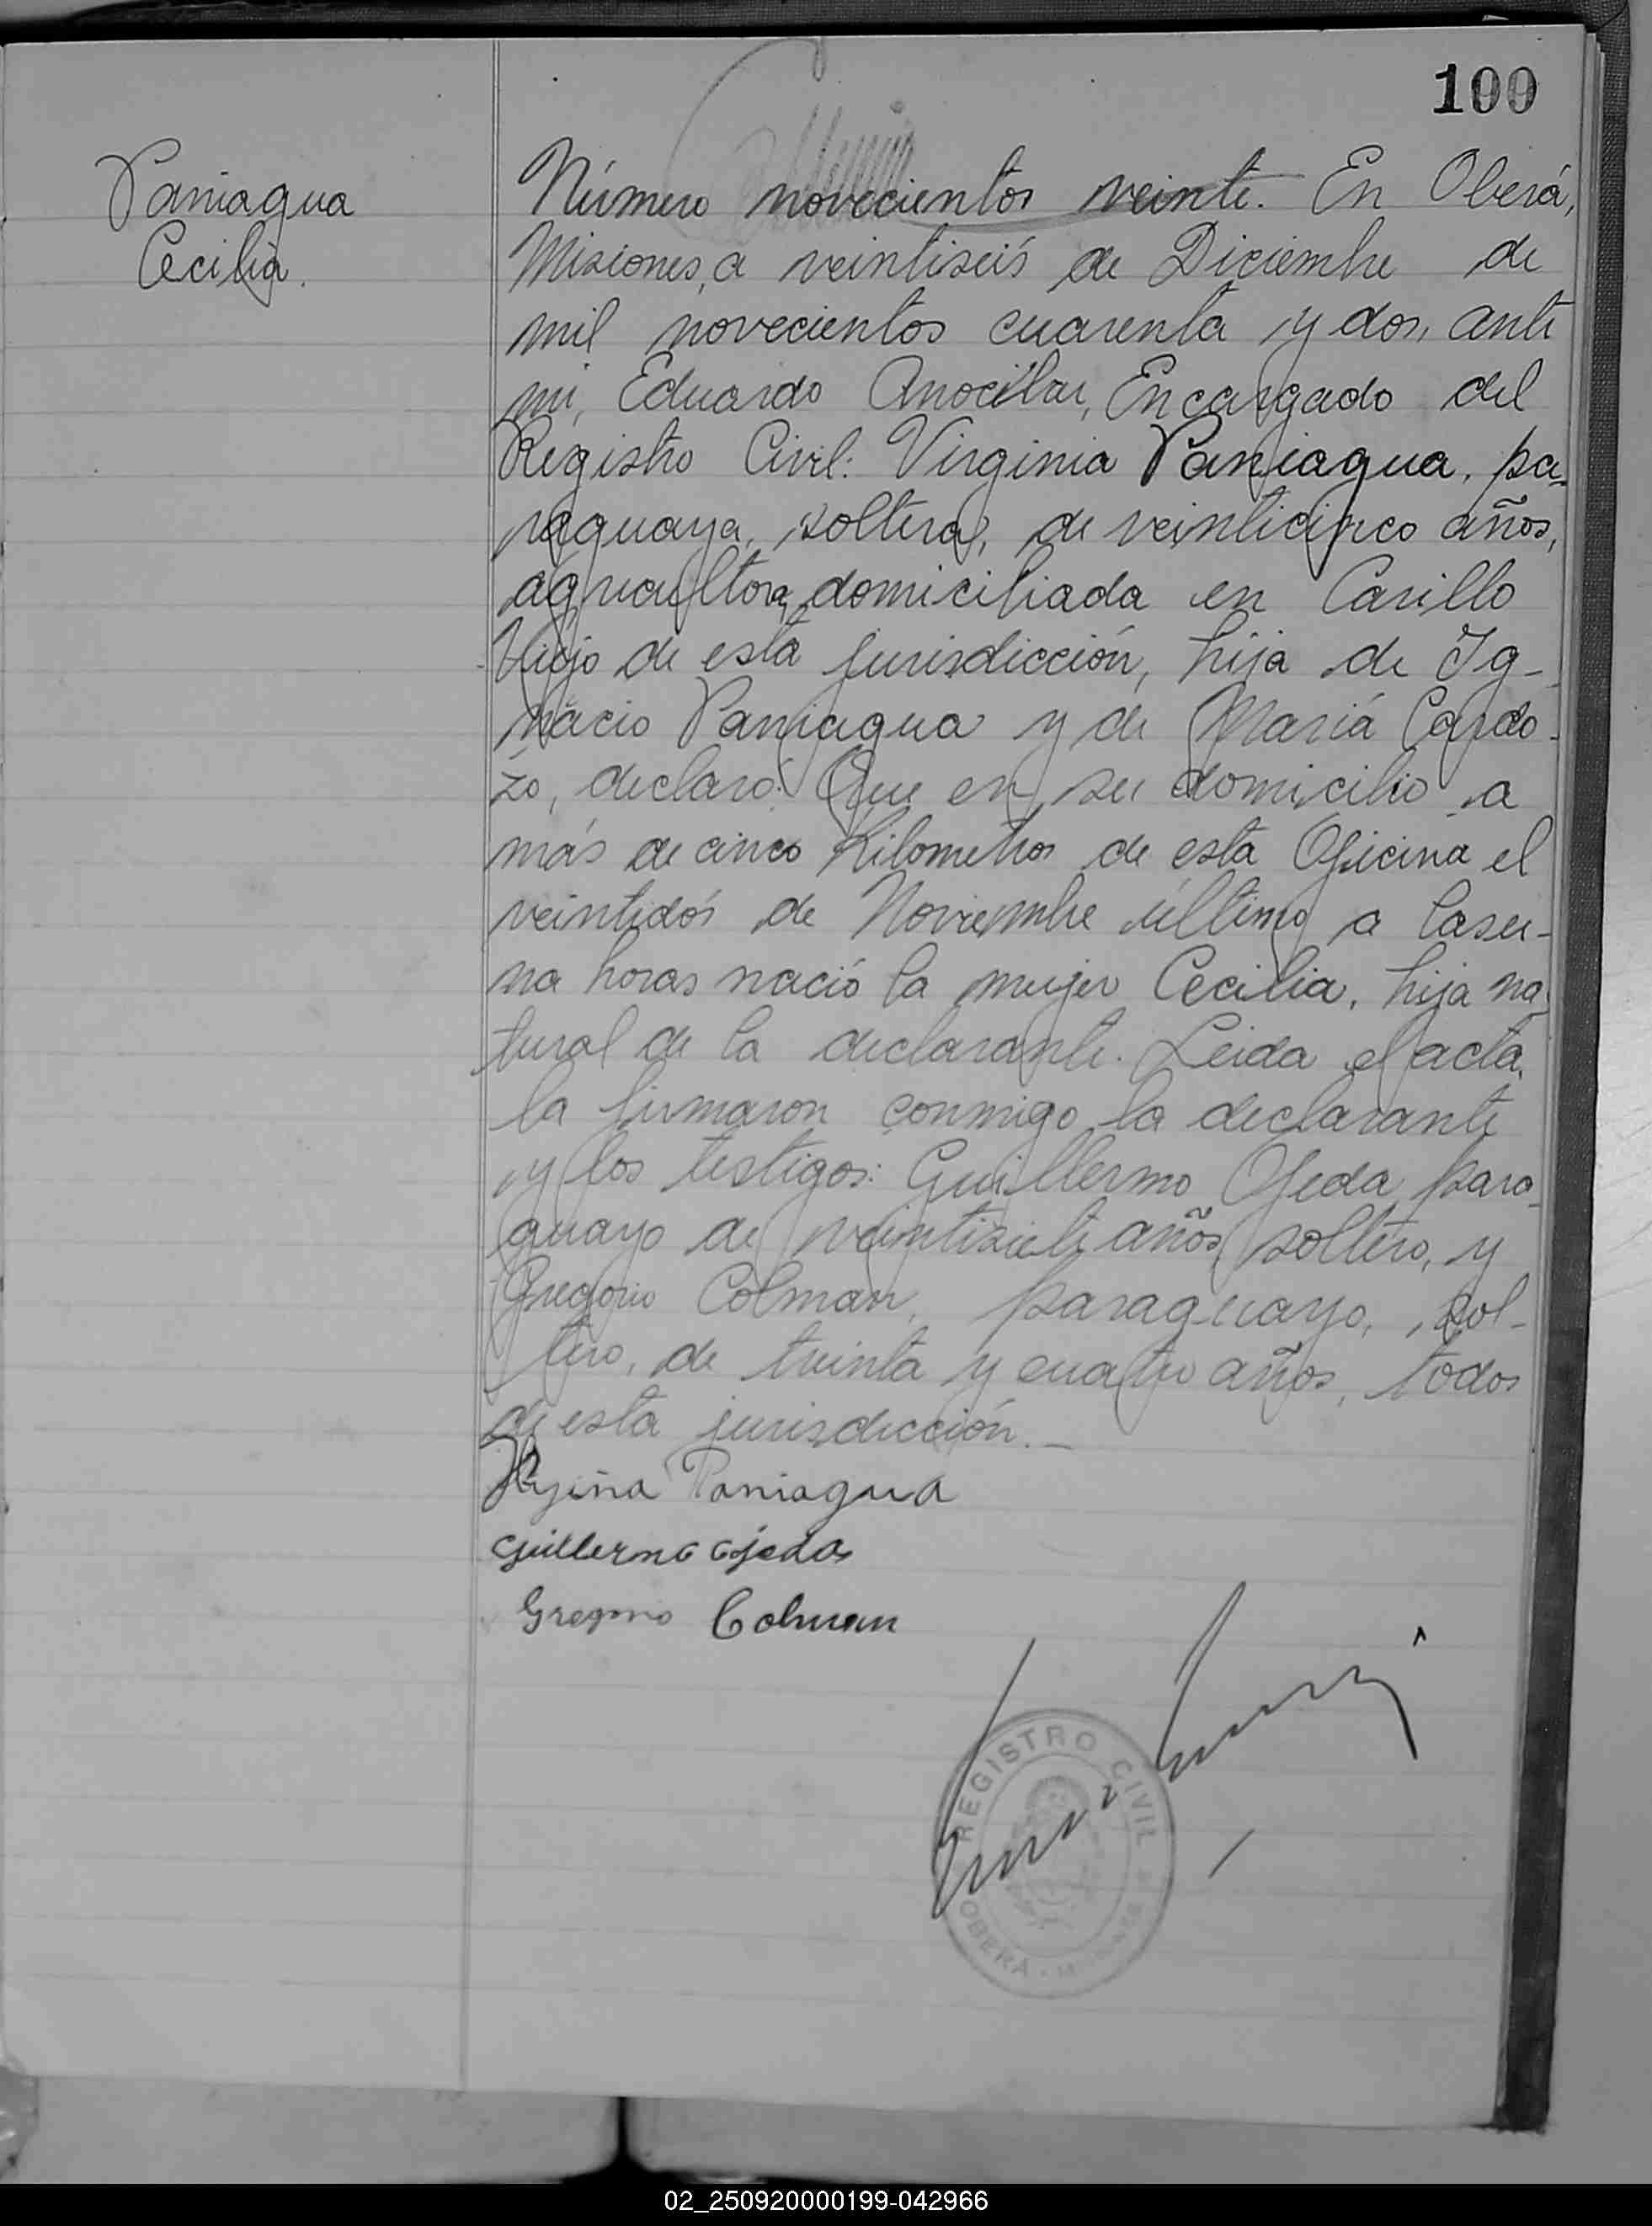 100
Paniagua
Cecilia.
Número novecientos veinte. En Oberá,
Misiones, a veintiseis de Diciembre de
mil novecientos cuarenta y dos, ante
mi, Eduardo Encargado del
Registro Civil: Virginia Paniagua, pa-
raguaya, soltera, de veinticinco años,
agricultora, domiciliada en Carillo
Viejo de esta jurisdicción, hija de Ig-
nacio Paniagua y de María Cardo-
zo, declaró: Que en su domicilio a
más de cinco kilometros de esta Oficina el
veintidós de Noviembre último a las u-
na horas nació la mujer Cecilia, hija na-
tural de la declarante. Leida el acta,
la firmaron conmigo la declarante
y los testigos: Guillermo Ojeda, para-
guayo de veintisiete años, soltero, y
Gregorio Colman, paraguayo, sol-
tero, de treinta y cuatro años, todos
de esta jurisdicción.—
Paniagua
Guillermo Ojeda
Gregorio Colman
REGISTRO CIVIL
OBERÁ - MISIONES
02_250920000199-042966